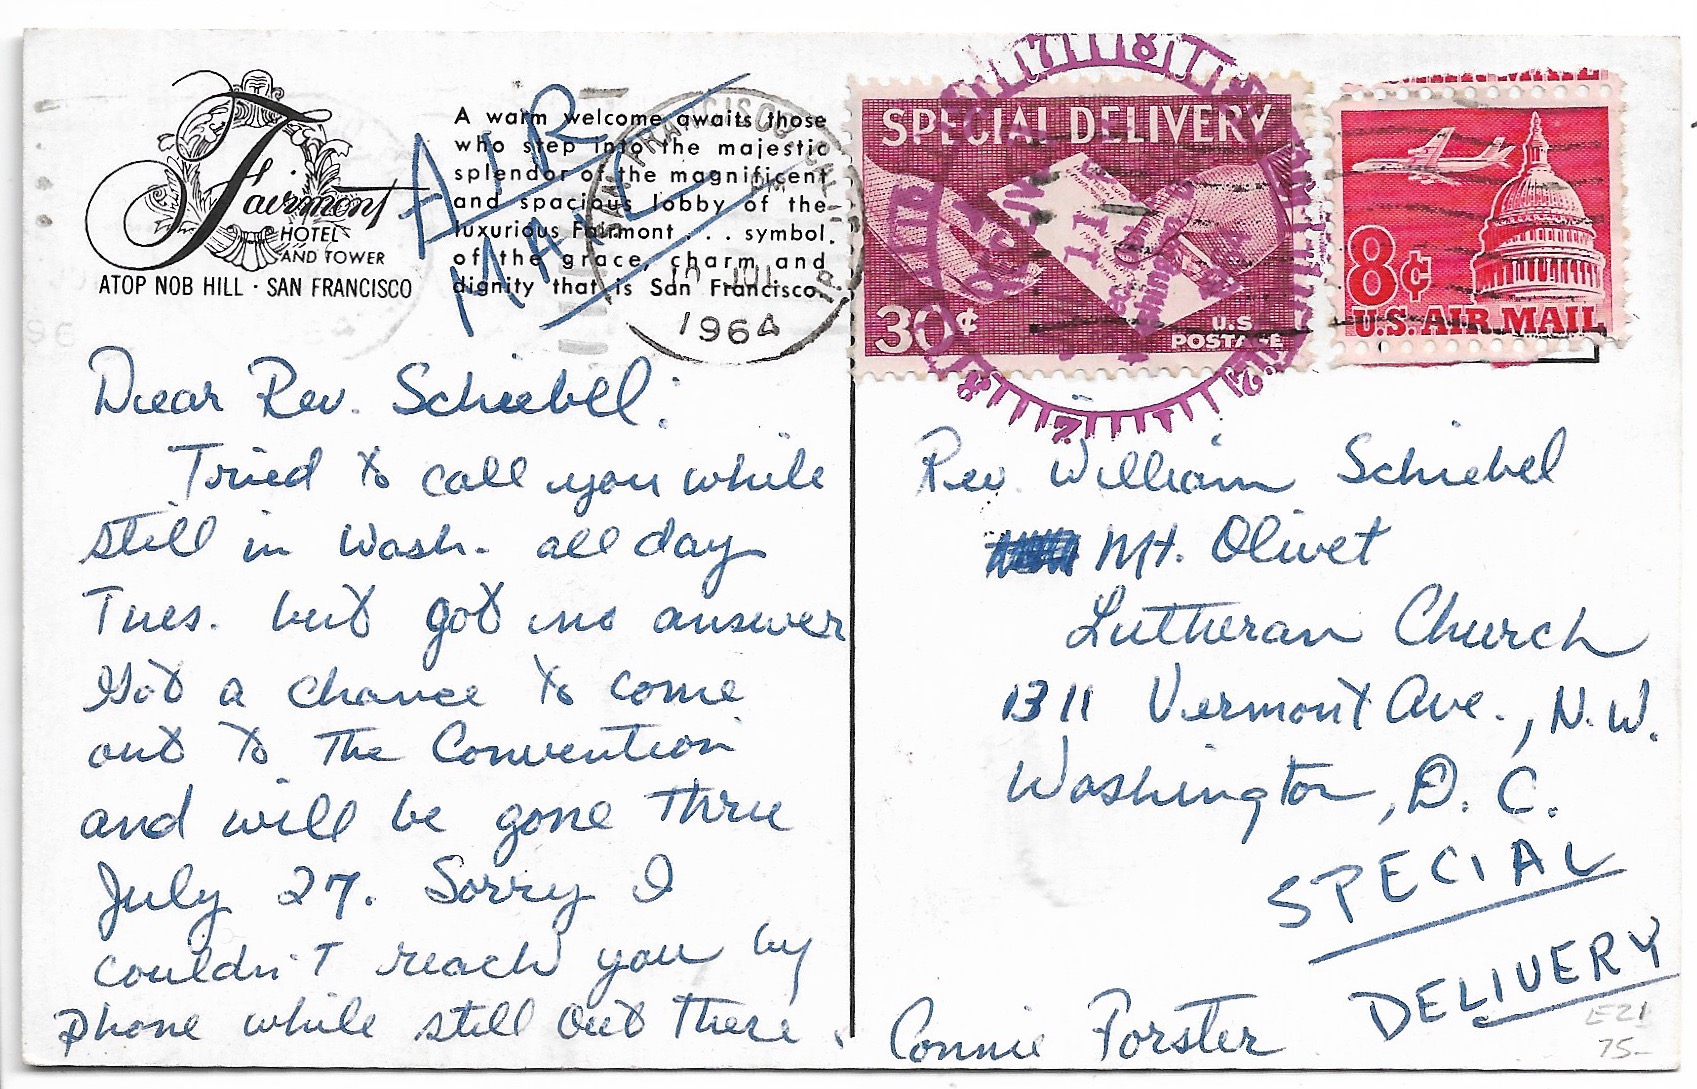 Fairmont
HOTEL
AND TOWER
ATOP NOB HILL · SAN FRANCISCO
A warm welcome awaits those
who step into the majestic
splendor of the magnificent
and spacious lobby of the
luxurious Fairmont . . . symbol
of the grace, charm and
dignity that is San Francisco.
AIR
MAIL
SAN FRANCISCO, CALIF.
PM
JUL
1964
SPECIAL DELIVERY
30¢
U.S.
POSTAGE
8¢
U.S. AIR MAIL
Dear Rev. Schiebel:
Tried to call you while
still in Wash. all day
Tues. but got no answer
Got a chance to come
out to the Convention
and will be gone thru
July 27. Sorry I
couldn't reach you by
phone while still out there.
Connie Forster
Rev. William Schiebel
Mt. Olivet
Lutheran Church
1311 Vermont Ave., N.W.
Washington, D.C.
SPECIAL
DELIVERY
E21
75-